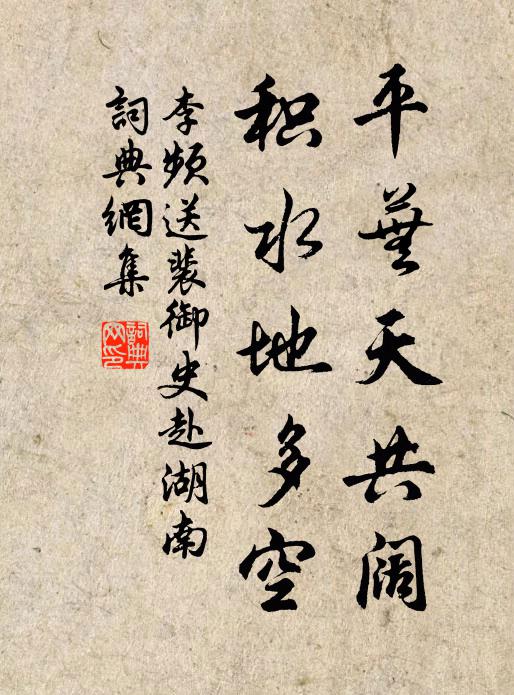 平蕪天共阔
积水地多空
李频送裴御史赴湖南
詞典網集
詞典网印